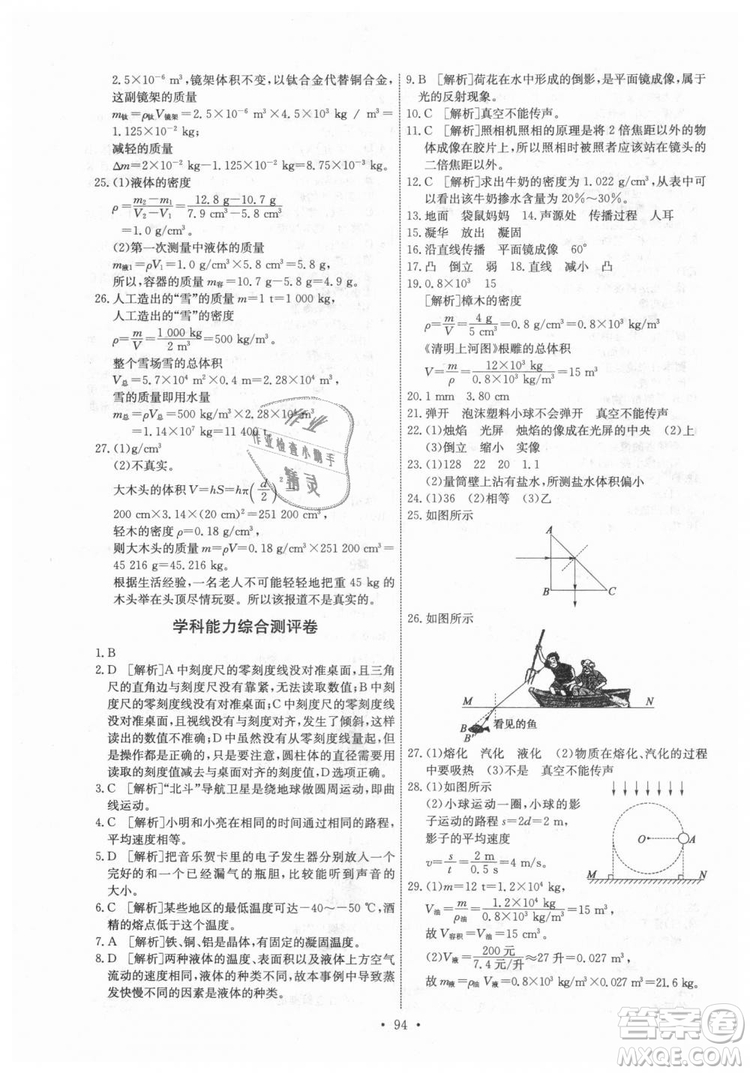 2.5×10⁻⁶ m³，镜架体积不变，以钛合金代替铜合金，
这副镜架的质量
m钛=ρ钛V镜架=2.5×10⁻⁶ m³×4.5×10³ kg/m³=
1.125×10⁻² kg
减轻的质量
Δm=2×10⁻² kg-1.125×10⁻² kg=8.75×10⁻³ kg
25. (1)液体的密度
ρ=(m₂-m₁)/(V₂-V₁)=(12.8 g-10.7 g)/(7.9 cm³-5.8 cm³)
=1.0 g/cm³
(2)第一次测量中液体的质量
m液1=ρV₁=1.0 g/cm³×5.8 cm³=5.8 g
所以，容器的质量 m容=10.7 g-5.8 g=4.9 g。
26. 人工造出的“雪”的质量 m=1 t=1 000 kg
人工造出的“雪”的密度
ρ=m/V=1 000 kg/2 m³=500 kg/m³。
整个雪场雪的总体积
V总=5.7×10⁴ m²×0.4 m=2.28×10⁴ m³
雪的总质量即用水量
m总=ρV总=500 kg/m³×2.28×10⁴ m³
=1.14×10⁷ kg=11 400 t
27. (1)g/cm³
(2)不真实。
大木头的体积 V=hS=hπ(d/2)²=
200 cm×3.14×(20 cm)²=251 200 cm³
轻木的密度 ρ=0.18 g/cm³，
则大木头的质量 m=ρV=0.18 g/cm³×251 200 cm³=
45 216 g=45.216 kg。
根据生活经验，一名老人不可能轻松地把重 45 kg的
木头举在头顶尽情玩耍。所以该报道不是真实的。
学科能力综合测评卷
1. B
2. D [解析]A中刻度尺的零刻度线没对准桌面，且三角
尺的直角边与刻度尺没有靠紧，无法读取数值；B中刻
度尺的零刻度线没对准桌面；C中刻度尺的零刻度线没
对准桌面，且视线没有与刻度线相平，发生了倾斜，这样
读出的数值是偏大的；D中刻度尺的零刻度线虽然没有
对准桌面，但如果按照桌面对齐的刻度值为准来测量也
是操作正确的，需要注意的是，圆柱体的直径是三角尺
读取的刻度值减去与桌面对齐的刻度值，D选项正确。
3. C [解析]“北斗”导航卫星是绕地球做圆周运动，即曲
线运动。
4. C [解析]小明和小亮在相同的时间通过相同的路程，
平均速度相等。
5. D [解析]把音乐贺卡里的电子发音器分别放到一个
完好的和一个已经漏气的瓶胆，比较听到的声音的
大小。
6. C [解析]某些地区的最低温度可达-40～-50 ℃，酒
精的熔点低于这个温度。
7. A [解析]铁、铜、铝是晶体，有固定的凝固温度。
8. D [解析]两种液体的温度、表面积以及表面上方空气
流动的速度相同，液体的种类不同，故本事例中导致蒸
发快慢不同的因素是液体的种类。
9. B [解析]荷花在水中形成的倒影，是平面镜成像，属于
光的反射现象。
10. C [解析]真空不能传声。
11. C [解析]照相机照相的原理是将 2 倍焦距以外的物
体成像在胶片上，所以被照者应该站在镜头的
二倍焦距以外。
12. C [解析]求出牛奶的密度为 1.022 g/cm³，从表中可
以看出该牛奶掺水含量为 20%～30%。
13. 地面 袋鼠妈妈 14. 声源处 传播过程 人耳
15. 凝华 放出 凝固
16. 沿直线传播 平面镜成像 60°
17. 凸 倒立 凹 18. 直线 减小 凸
19. 0.8×10³ 15
[解析]樟木的密度
ρ=m/V=4 g/5 cm³=0.8 g/cm³=0.8×10³ kg/m³
《清明上河图》根雕的总体积
V=m/ρ=12×10³ kg/0.8×10³ kg/m³=15 m³
20. 1 mm 3.80 cm
21. 弹开 泡沫塑料小球不会弹开 真空不能传声
22. (1)烛焰 光屏 烛焰的像在光屏的中央 (2)上
(3)倒立 缩小 实像
23. (1)128 22 20 1.1
(2)量筒壁上沾有盐水，所测盐水体积偏小
24. (1)36 (2)相等 (3)乙
25. 如图所示
A
B C
26. 如图所示
M N
B
B′ 看见的鱼
27. (1)熔化 汽化 液化 (2)物质在熔化、汽化的过程
中要吸热 (3)不是 真空不能传声
28. (1)如图所示
(2)小球运动一圈，小球的影
子运动的路程 s=2d=2 m，
影子的平均速度
v=s/t=2 m/0.5 s=4 m/s
O A
M N
29. (1)m=12 t=1.2×10⁴ kg
V油=m/ρ油=1.2×10⁴ kg/0.8×10³ kg/m³=15 m³，
故 V容积=V油=15 m³。
(2)V液=200 元/7.4 元/升≈27 升=0.027 m³
故 m液=ρ液V液=0.8×10³ kg/m³×0.027 m³=21.6 kg。
• 94 •
作业
作业检查小助手
精灵
答案圈
MXQE.COM